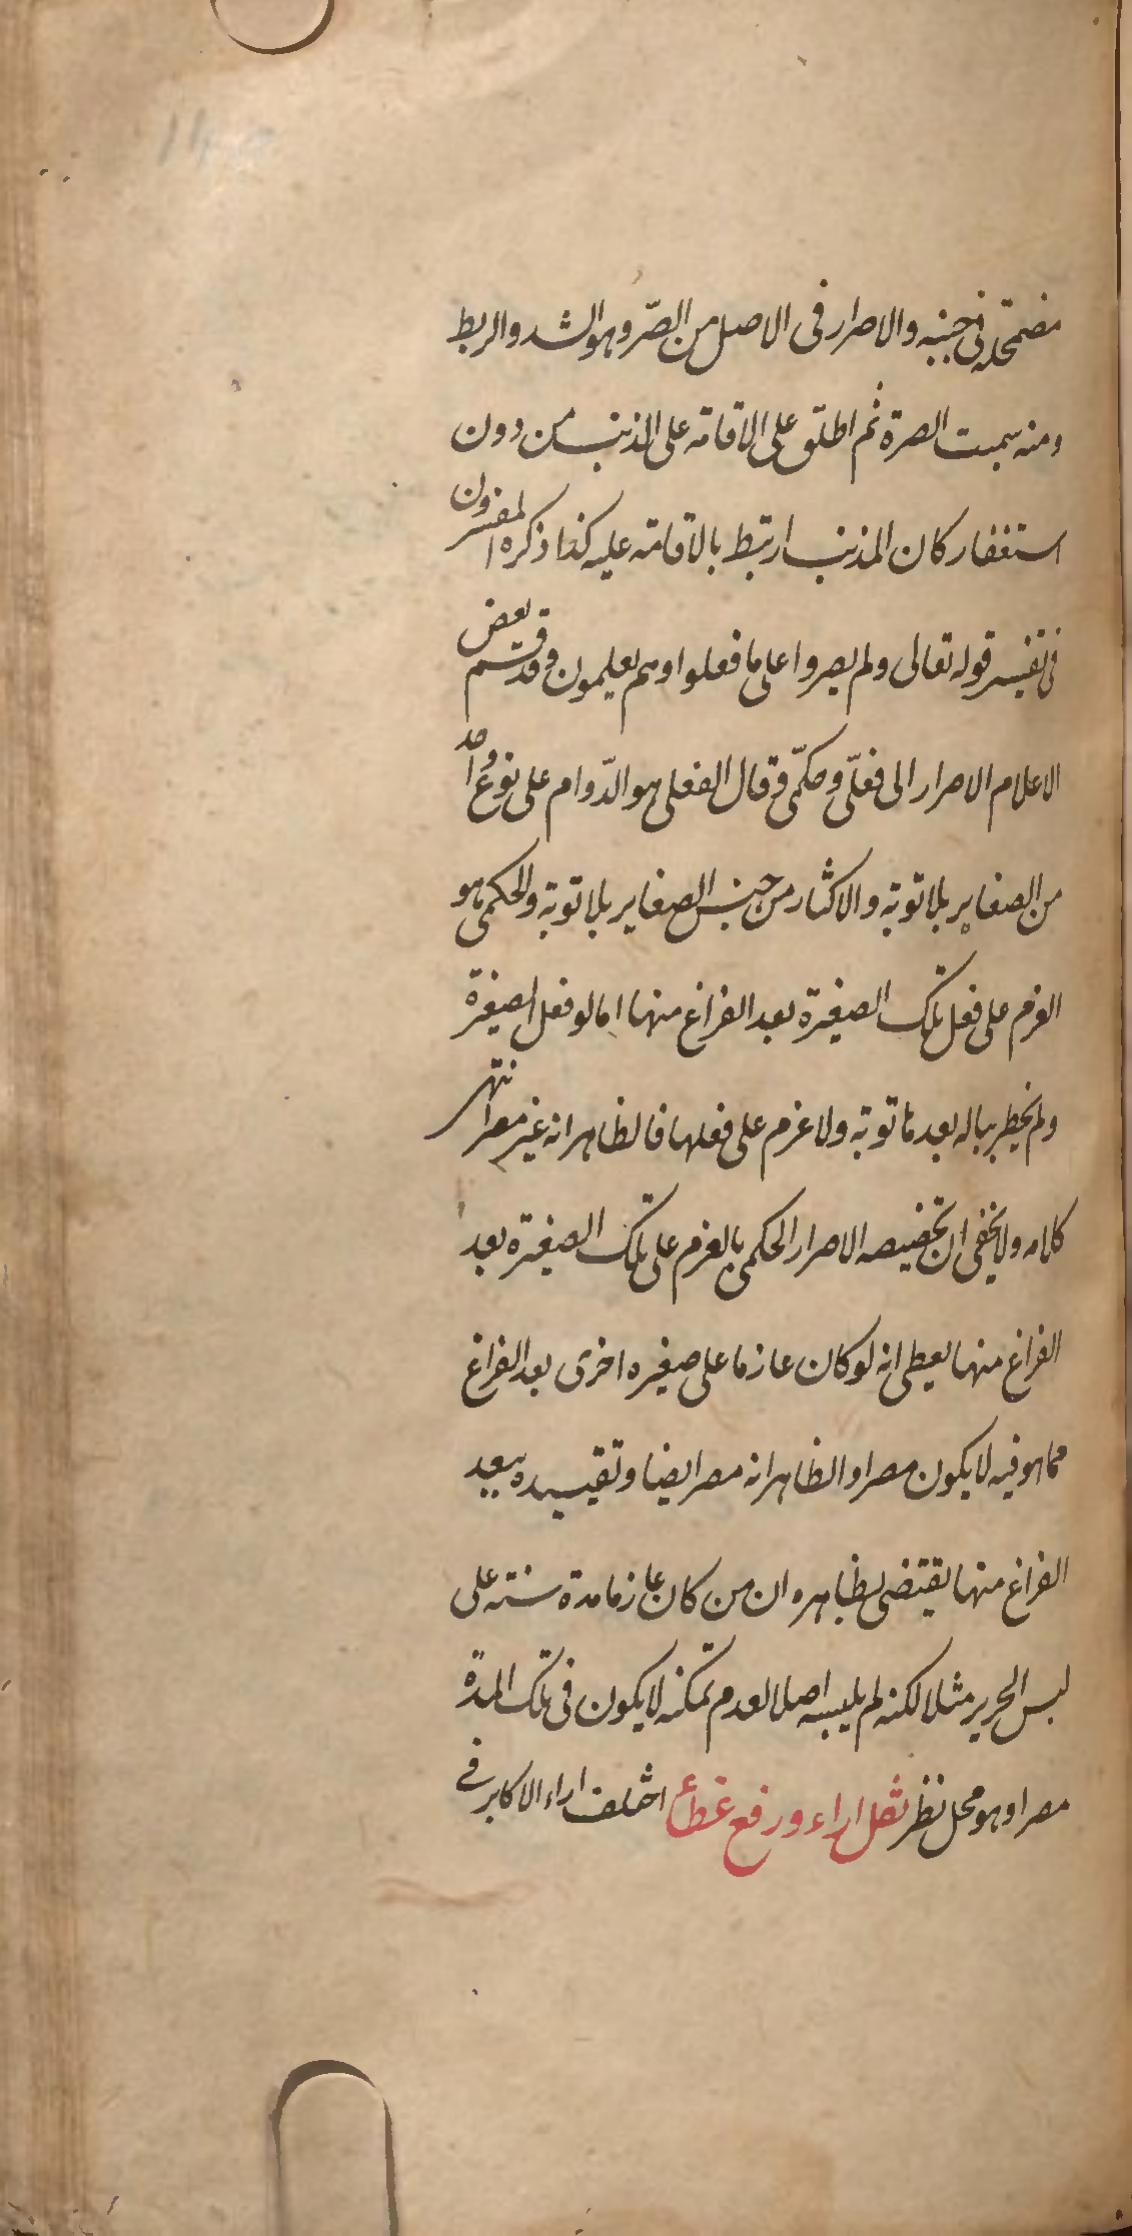 مضمحلة في جنبه والاصرار فى الاصل من الصّر وهو الشد والربط
ومنه سميت الصرة ثم اطلق على الاقامة على الذنب من دون
استغفار كان المذنب ارتبط بالاقامة عليه كذا ذكره المفسرون
فى تفسير قوله تعالى ولم يصروا على ما فعلوا وهم يعلمون وقد قسم بعض
الاعلام الاصرار الى فعلّى وحكمّى وقال الفعلى هو الدّوام على نوع واحد
من الصغاير بلا توبة والاكثار من جنس الصغاير بلا توبة والحكمى هو
العزم على فعل تلك الصغيرة بعد الفراغ منها اما لو فعل الصغيرة
ولم يخطر بباله بعدها توبة ولا عزم على فعلها فالظاهر انه غير مصر انتهى
كلامه ولا يخفى ان تخصيصه الاصرار الحكمى بالعزم على تلك الصغيرة بعد
الفراغ منها يعطى انه لو كان عازما على صغيره اخرى بعد الفراغ
مما هو فيه لا يكون مصرا والظاهر انه مصر ايضا وتقييده ببعد
الفراغ منها يقتضى بظاهره ان من كان عازما مدة سنة على
لبس الحرير مثلا لكنه لم يلبسه اصلا لعدم تمكنه لا يكون فى تلك المدة
مصرا وهو محل نظر نقل اراء ورفع غطاء اختلف اراء الاكابر فى